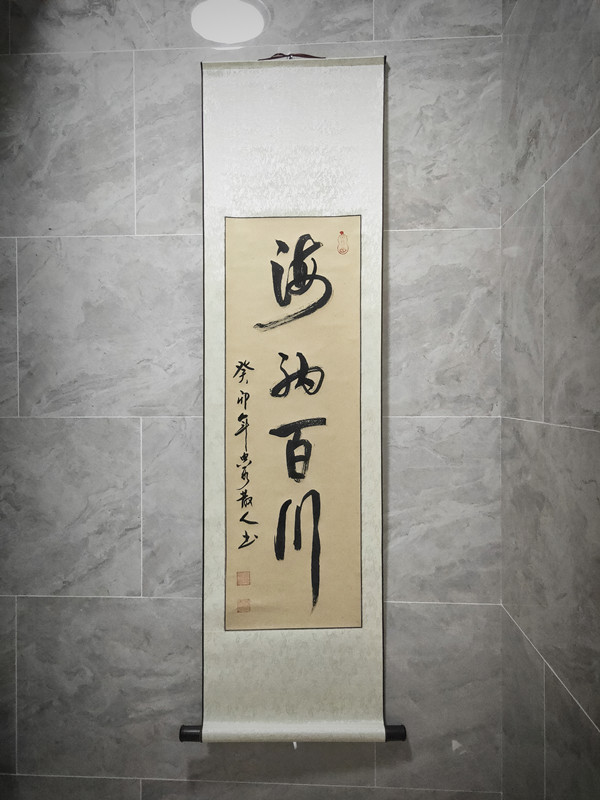 海纳百川
癸卯年散人书